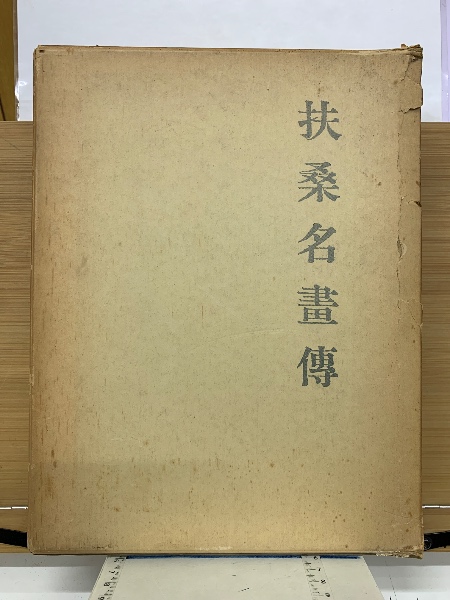 扶桑名畫傳